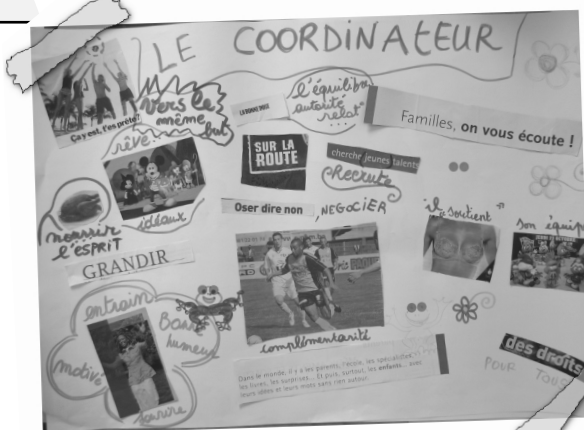 LE COORDINAtEUR
Ça y est, t'es prête?
vers le
même
but
LA BONNE DOSE
l'équilibre
autorité
relat°
...
Familles, on vous écoute !
rêve
idéaux
SUR LA
ROUTE
cherche jeunes talents
Recrute
nourrir
l'ESPRIT
Oser dire non , NEGOCIER
il "soutient"
son équipe
GRANDIR
entrain
Bonne
humeur
motivé
sourire
complémentarité
Dans le monde, il y a les parents, l'école, les spécialistes,
les livres, les surprises... Et puis, surtout, les enfants... avec
leurs idées et leurs mots sans rien autour.
des droits
POUR TOUS